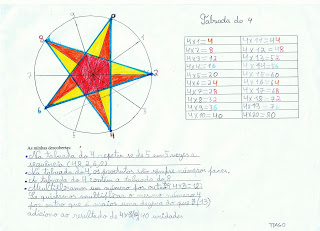 Tabuada do 4
0
8
2
6
4
4x1=4 4x11=44
4x2=8 4x12=48
4x3=12 4x13=52
4x4=16 4x14=56
4x5=20 4x15=60
4x6=24 4x16=64
4x7=28 4x17=68
4x8=32 4x18=72
4x9=36 4x19=76
4x10=40 4x20=80
As minhas descobertas:
Na tabuada do 4 repete-se de 5 em 5 vezes a
sequência (4,8,2,6,0)
Na tabuada do 4, os produtos são sempre números pares.
A tabuada do 4 contém a tabuada do 8.
Multiplicamos um número por outro (4x3=12)
Se quisermos multiplicar o mesmo número 4
por outro que é maior uma dezena do que 3 (13)
adiciono ao resultado de 4x3 40 unidades
TIAGO